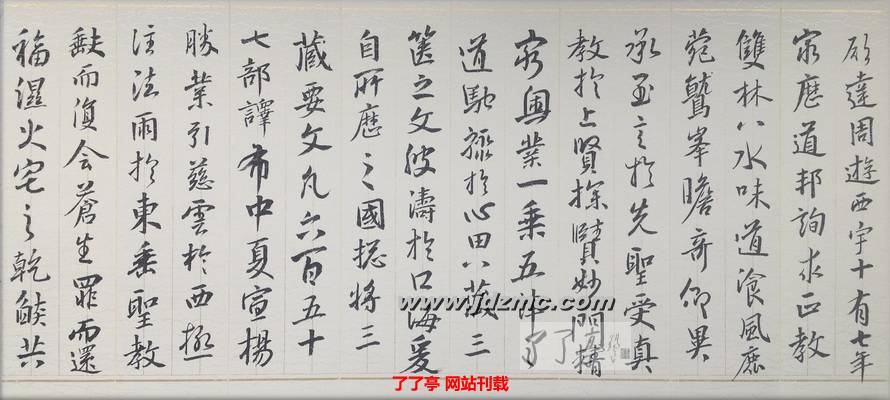 願達周遊西宇十有七年
窮歷道邦詢求正教
雙林八水味道飡風鹿
菀鷲峯瞻奇仰異
承至言於先聖受真
教於上賢探賾妙門精
窮奧業一乘五
道馳驟於心田八藏三
篋之文波濤於口海爰
自所歷之國揔將三
藏要文凡六百五十
七部譯布中夏宣揚
勝業引慈雲於西極
注法雨於東垂聖教
缺而復全蒼生罪而還
福濕火宅之乾燄共
www.jdzmc.com
了了亭 网站刊载